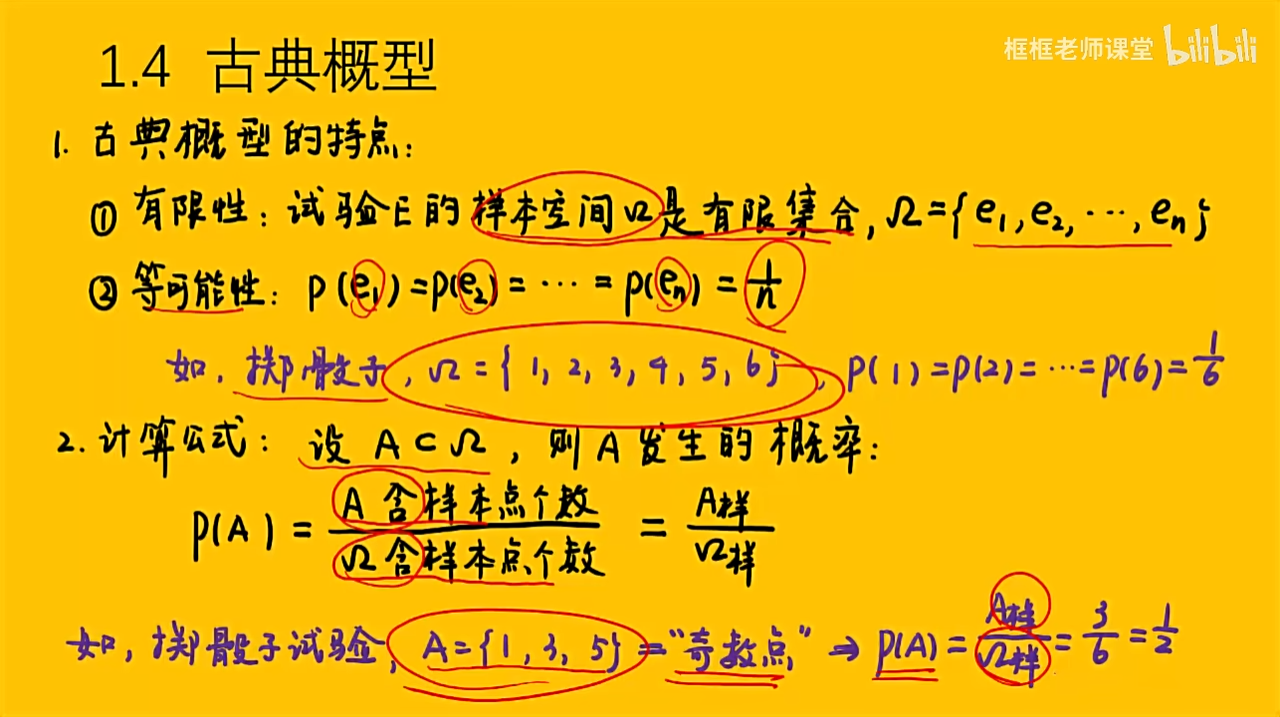 1.4 古典概型
框框老师课堂 bilibili
1. 古典概型的特点:
① 有限性: 试验E的样本空间Ω是有限集合, Ω={e₁, e₂, ⋯, eₙ}
② 等可能性: P(e₁)=P(e₂)=⋯=P(eₙ)=1/n
如, 掷骰子, Ω={1, 2, 3, 4, 5, 6}, P(1)=P(2)=⋯=P(6)=1/6
2. 计算公式: 设 A⊂Ω, 则A发生的概率:
P(A)=A含样本点个数/Ω含样本点个数=A样/Ω样
如, 掷骰子试验, A={1, 3, 5}="奇数点"⇒P(A)=A样/Ω样=3/6=1/2